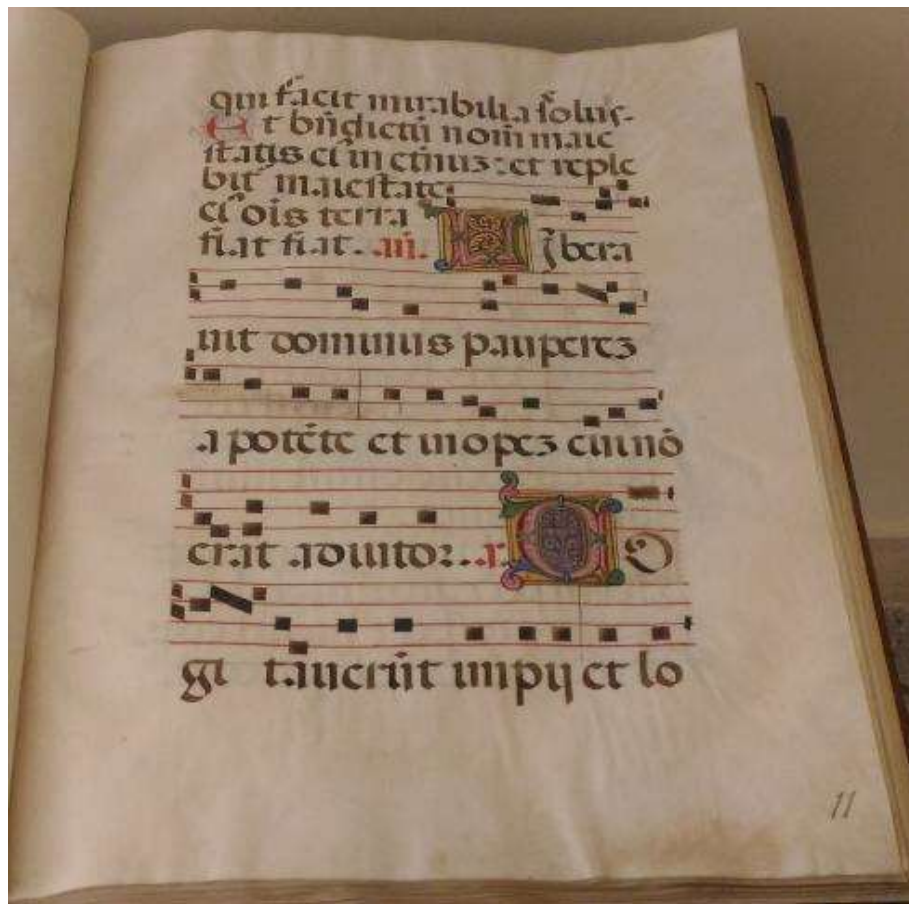 qui facit mirabilia solus.
Et bn̄dictū nom̄ maie
statis ei in etr̄nuz: et reple
bit maiestate
ei ois̄ terra
fiat fiat. an̄. L ībera
uit dominus pauperez
a potēte et inopez cui nō
erat adiutor. a. C O
gi tauerūt impij et lo
11